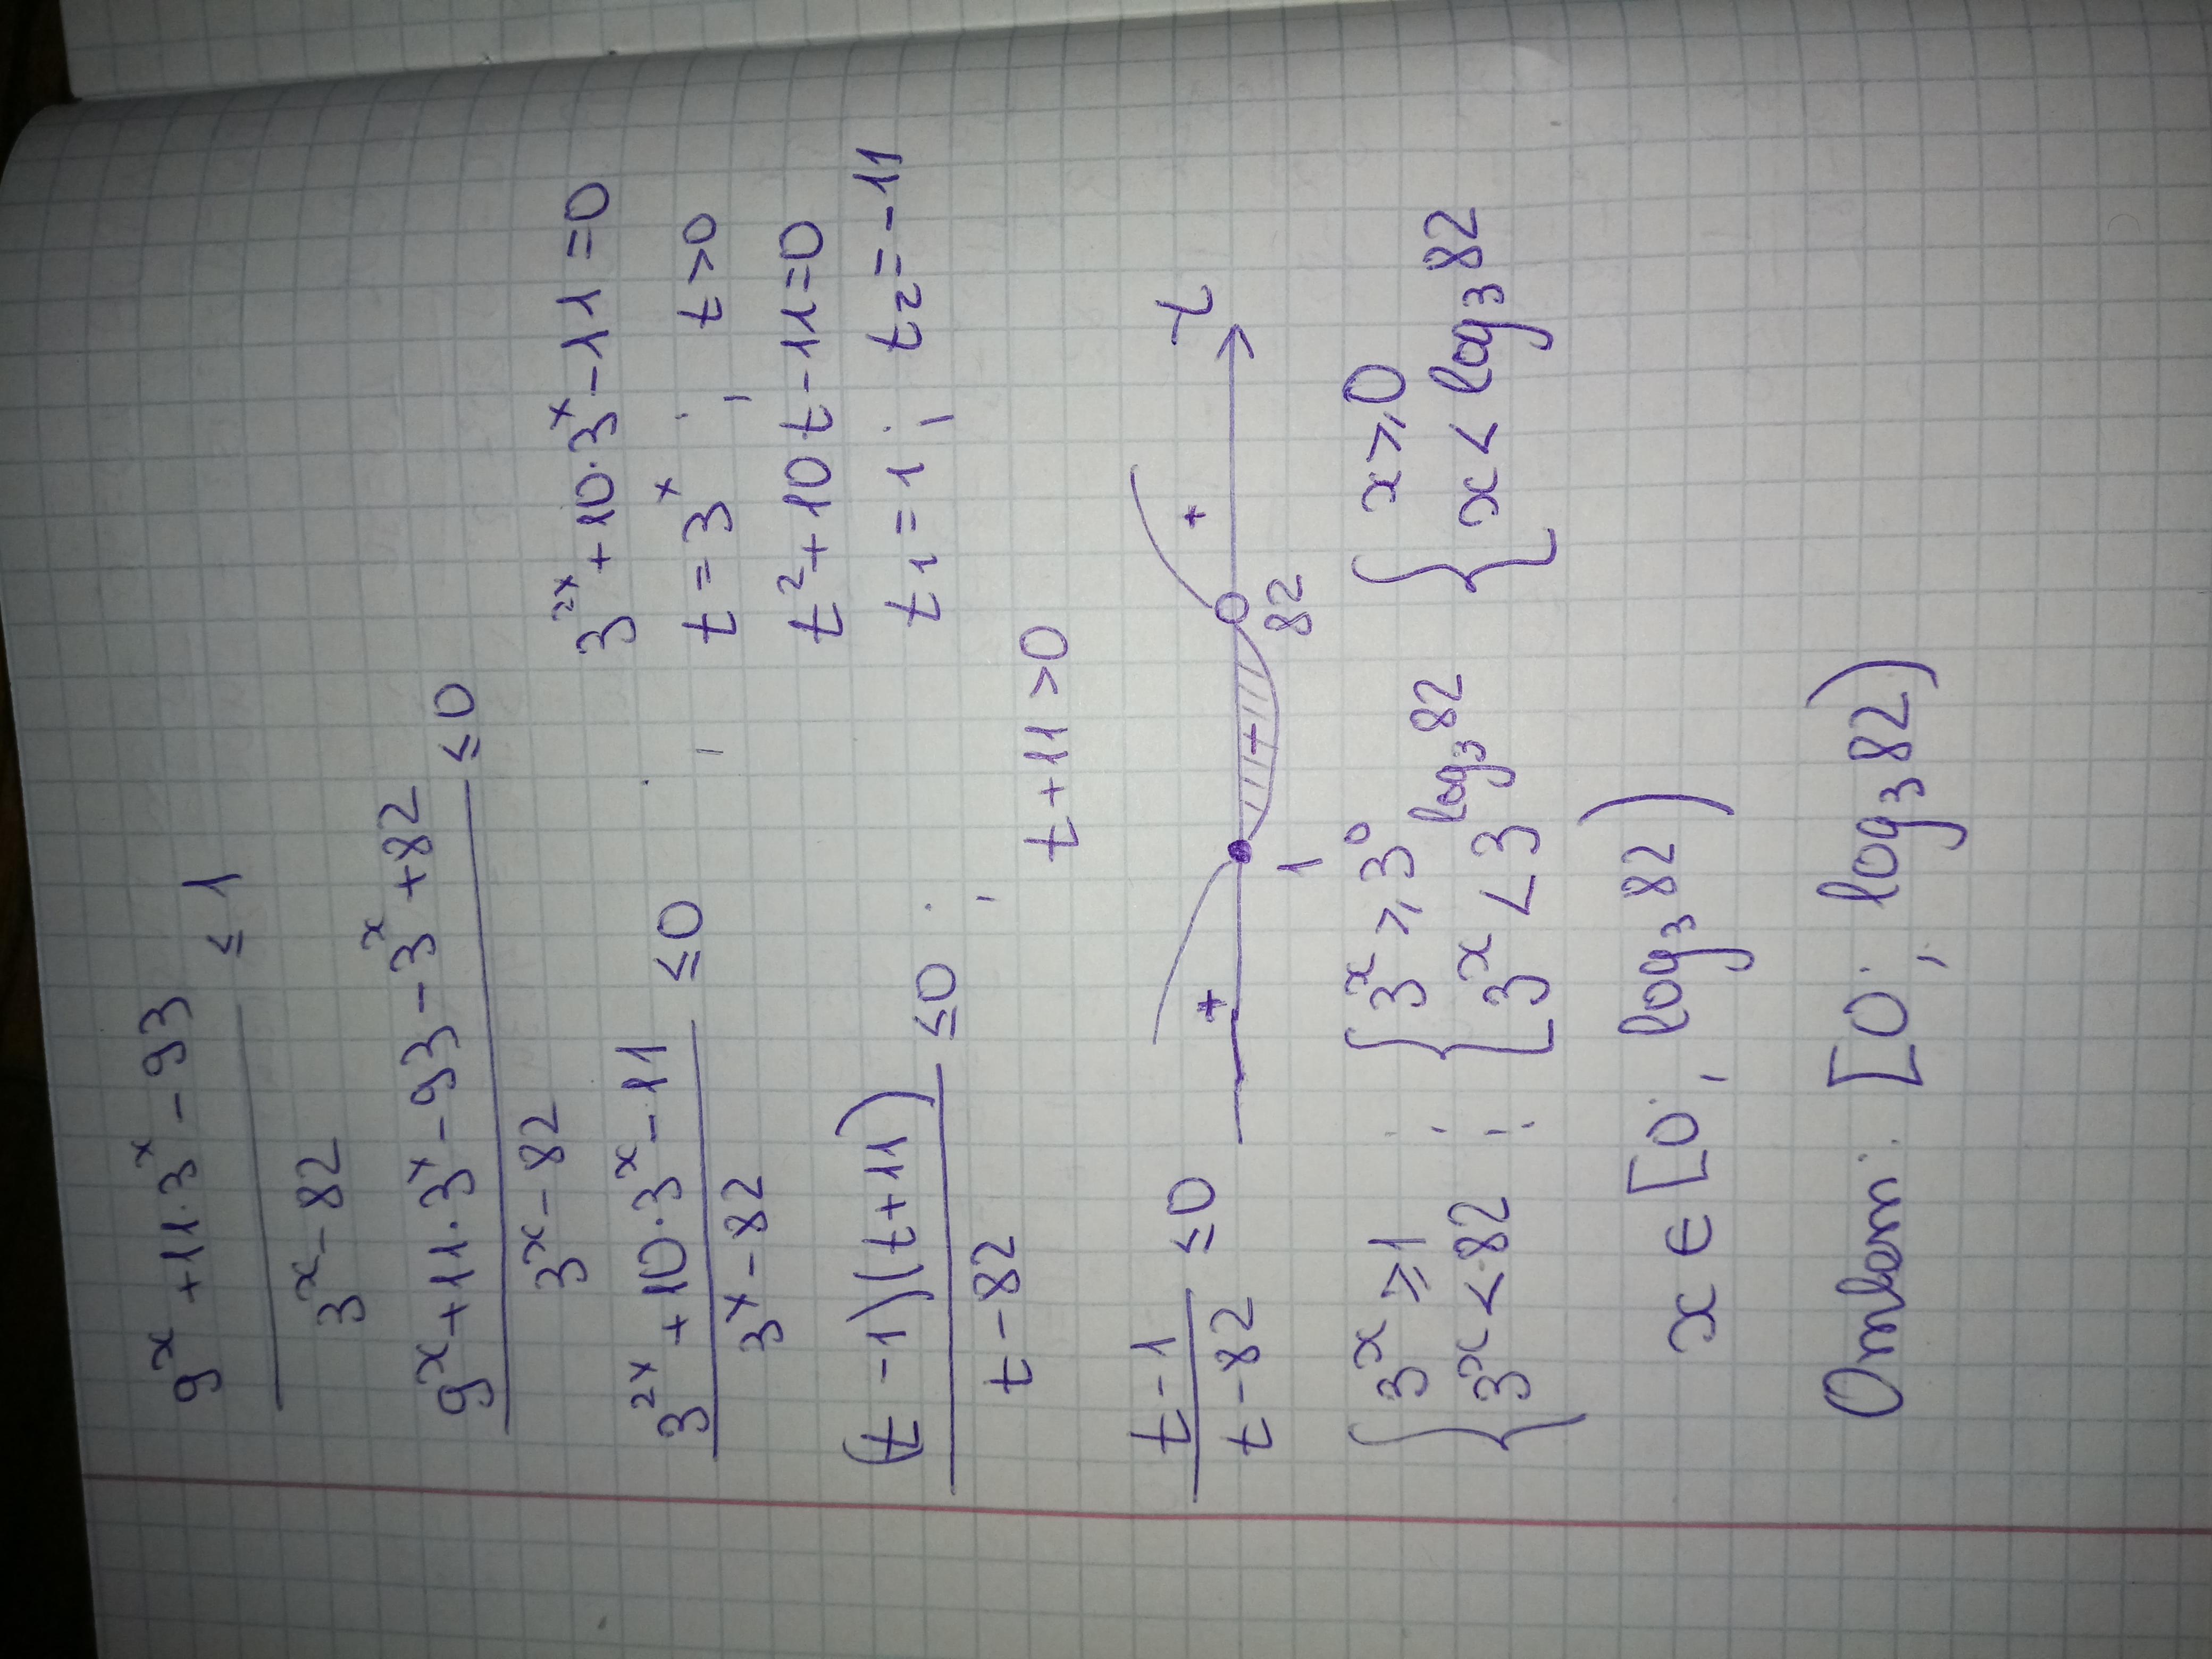 9ˣ + 11·3ˣ - 93 / 3ˣ - 82 ≤ 1
9ˣ + 11·3ˣ - 93 - 3ˣ + 82 / 3ˣ - 82 ≤ 0
3²ˣ + 10·3ˣ - 11 / 3ˣ - 82 ≤ 0
3²ˣ + 10·3ˣ - 11 = 0
t = 3ˣ ; t > 0
t² + 10t - 11 = 0
t₁ = 1 ; t₂ = -11
(t - 1)(t + 11) / t - 82 ≤ 0 ; t + 11 > 0
t - 1 / t - 82 ≤ 0
+ - + t
1 82
{ 3ˣ ≥ 1 ; { 3ˣ ≥ 3⁰ { x ≥ 0
3ˣ < 82 ; 3ˣ < 3^log₃82 x < log₃82
x ∈ [0; log₃82)
Ответ: [0; log₃82)